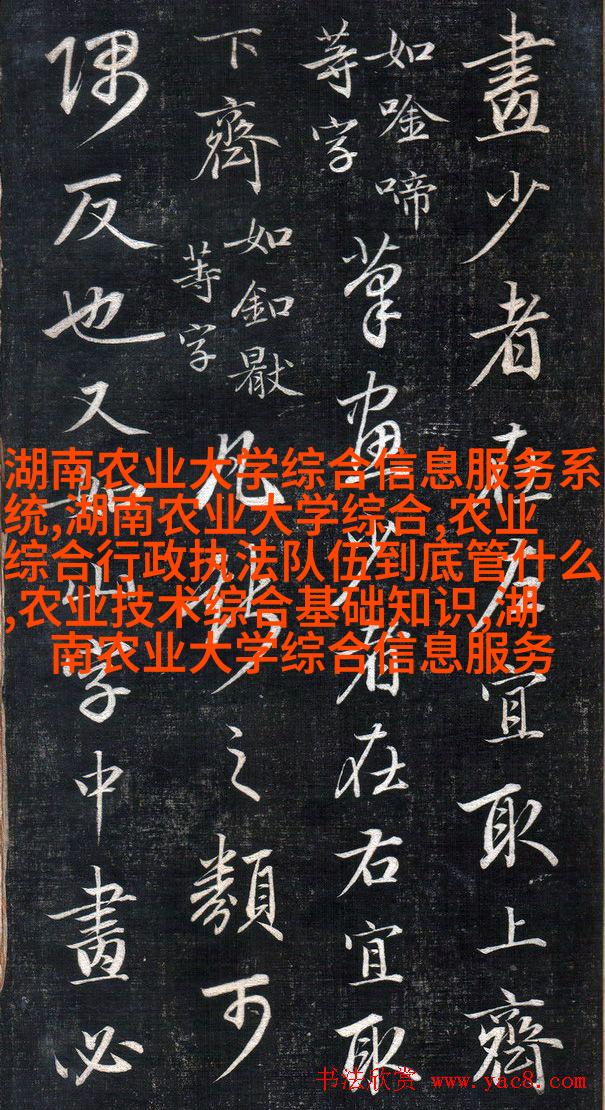 畫少者在左宜取上齊
如唫啼
等字
筆畫少者在右宜取
下齊
如釦
等字
凡之類可
隅反也又如山字中畫必
湖南农业大学综合信息服务系
统,湖南农业大学综合,农业
综合行政执法队伍到底管什么
,农业技术综合基础知识,湖
南农业大学综合信息服务
书法欣赏 www.yac8.com